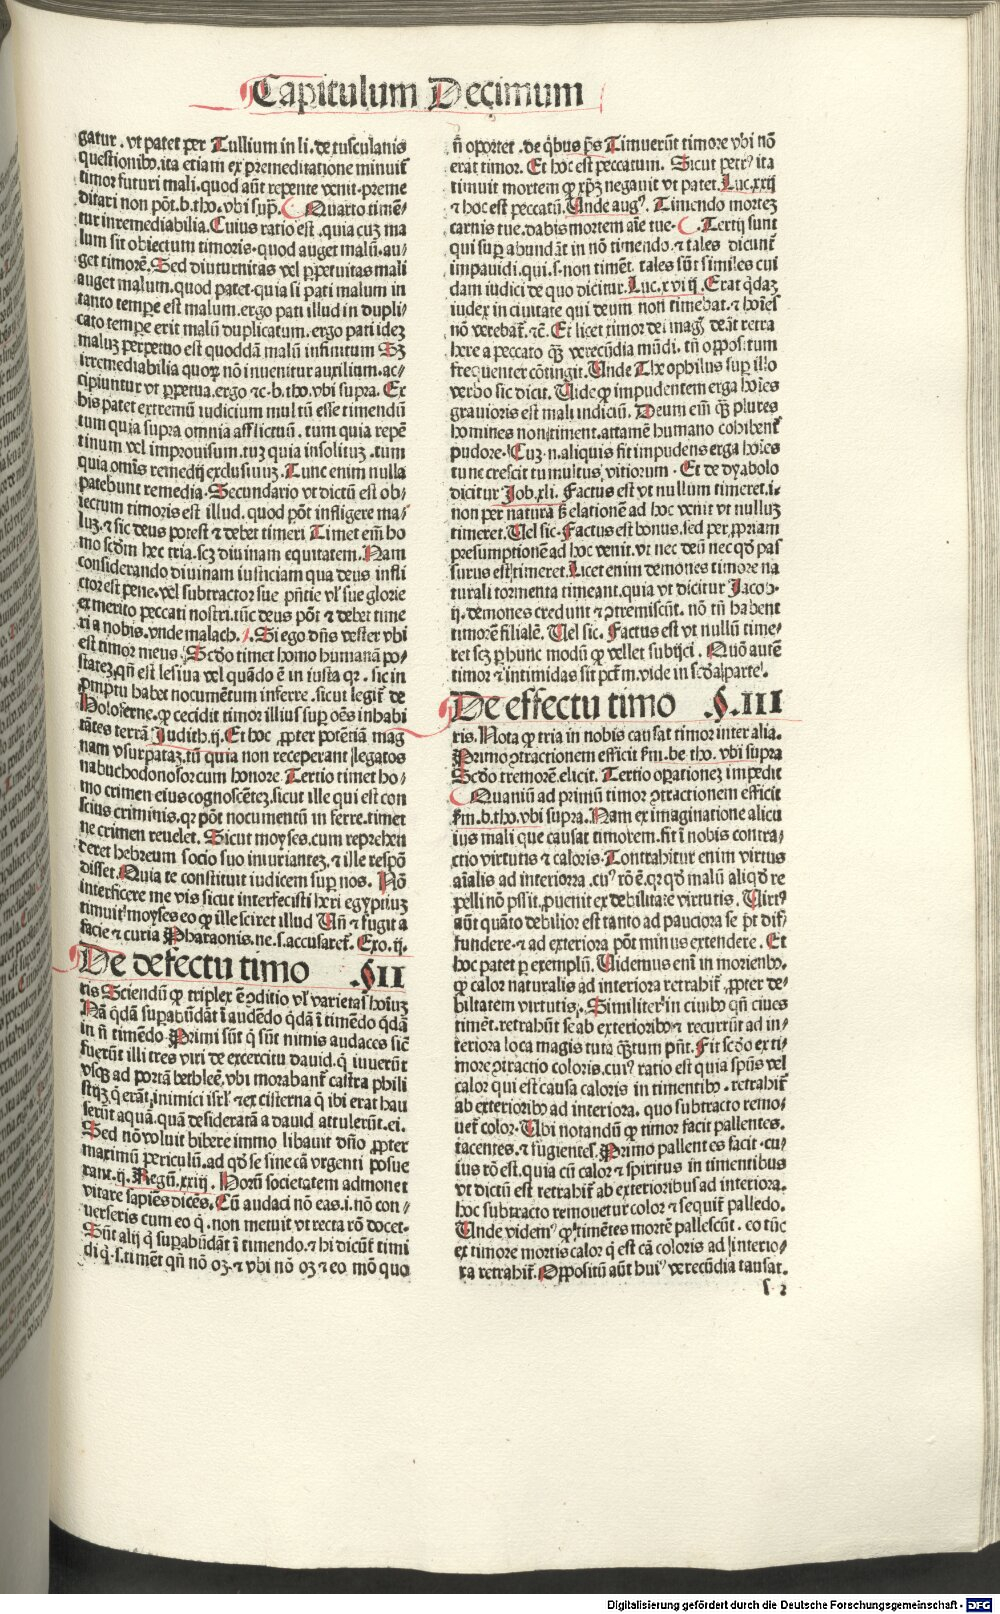 Capitulum Decimum
gatur. vt patet per Tullium in li. de tusculanis
questionibꝰ. ita etiam ex premeditatione minuit᷑
timor futuri mali. quod aūt repente venit. preme
ditari non pōt. b. tho. vbi sup̄. Quarto timē-
tur inremediabilia. Cuius ratio est. quia cuꝫ ma
lum sit obiectum timoris. quod auget malū. au/
get timorē. Sed diuturnitas vel ꝑpetuitas mali
auget malum. quod patet. quia si pati malum in
tanto tempe est malum. ergo pati illud in dupli/
cato tempe erit malū duplicatum. ergo pati ideꝫ
maluꝫ perpetuo est quoddā malū infinitum Sꝫ
irremediabilia quoꝝ nō inuenitur auxilium. ac/
cipiuntur vt ꝑpetua. ergo ⁊c. b. tho. vbi supra. Ex
his patet extremū iudicium multū esse timendū
tum quia supra omnia afflictiuū. tum quia repē
tinum vel improuisum. tuꝫ quia insolituꝫ. tum
quia omīs remedij exclusiuuꝫ. Tunc enim nulla
patebunt remedia. Secundario vt dictū est ob/
iectum timoris est illud. quod pōt infligere ma/
luꝫ. ⁊ sic deus potest ⁊ debet timeri Timet em̄ ho
mo scd̄m hec tria. scꝫ diuinam equitatem. Nam
considerando diuinam iusticiam qua deus infli
ctor est pene. vel subtractor sue gr̄atie vl̓ sue glorie
ex merito peccati nostri. tūc deus pōt ⁊ debet time
ri a nobis. vnde malach. j. Si ego dn̄s vester vbi
est timor meus. Scd̄o timet homo humanā po/
stateꝫ. qn̄ est lesiua vel quādo ē in iusta qꝛ. sic in
ꝓmptu habet nocumētum inferre. sicut legit᷑ de
Holoferne. ꝙ cecidit timor illius suꝑ oēs inhabi
tātes terrā Judith. ij. Et hoc ꝓpter potētiā mag
nam vsurpataꝫ. tū quia non receperant legatos
nabuchodonosor cum honore Tertio timet ho/
mo crimen eius cognoscēteꝫ. sicut ille qui est con
scius criminis. qꝛ pōt nocumentū in ferre. timet
ne crimen reuelet. Sicut moyses. cum reprehen
deret hebreum socio suo iniuriantez. ⁊ ille respō
disset. Quis te constituit iudicem suꝑ nos. Nō
interficere me vis sicut interfecisti heri egyptiuꝫ
timuit moyses eo ꝙ ille sciret illud Vn̄ ⁊ fugit a
facie ⁊ curia Pharaonis. ne. s. accusaret᷑. Exo. ij.
De defectu timo §II
ris Sciendū ꝙ triplex ē ꝯditio vl̓ varietas hoīuꝫ
Nā q̄dā suꝑabūdāt ī audēdo q̄dā ī timēdo q̄dā
in n̄ timēdo Primi sūt q̄ sūt nimis audaces sic̄
fuerūt illi tres viri de excercitu dauid. q̄ iuuerūt
vsqꝫ ad portā bethleē. vbi morabant᷑ castra phili
stijꝫ. q̄ erāt inimici isrl̓ ⁊ ex cisterna q̄ ibi erat hau
serūt aquā. quā desideratā a dauid attulerūt. ei.
Sed nō voluit bibere immo libauit dn̄o ꝓpter
maximū periculū. ad qd̄ se sine cā vrgenti posue
rant. ij. Regū. xxiij. Horū societatem admonet
vitare sapiēs dicēs. Cū audaci nō eas. i. nō con/
uerseris cum eo q̄. non metuit vt recta rō docet.
Sūt alij q̄ suꝑabūdāt ī timendo. ⁊ hi dicūt᷑ timi
di q̄. s. timēt qn̄ nō oꝫ. ⁊ vbi nō oꝫ ⁊ eo mō quo
n̄ oportet. de q̄bus pˢ̄ Timuerūt timore vbi nō
erat timor. Et hoc est peccatum. Sicut petrꝰ ita
timuit mortem ꝙ xp̄ꝫ negauit vt patet. Luc. xxij
⁊ hoc est peccatū. Vnde augꝰ. Timendo morteꝫ
carnis tue. dabis mortem aīe tue. Tertij sunt
qui suꝑabundāt in nō timendo. ⁊ tales dicunt᷑
impauidi. qui. s. non timēt. tales sūt similes cui
dam iudici de quo dicitur. Luc. xviij. Erat q̄daꝫ
iudex in ciuitate qui deum non timebat. ⁊ hoīes
nō verebat᷑. ⁊c̄. Et licet timor dei magꝭ deāt retra
here a peccato q̄ꝫ verecūdia mūdi. tn̄ oppositum
frequenter cōtingit. Vnde Theophilus suꝑ illo
verbo sic dicit. Vide ꝙ impudentem erga hoīes
grauioris est mali indiciū. Deum em̄ q̄ꝫ plures
homines non timent. attamē humano cohibent᷑
pudore. Cuꝫ. n. aliquis fit impudens erga hoīes
tunc crescit tumultus vitiorum. Et de dyabolo
dicitur Job. xli. Factus est vt nullum timeret. i.
non per natura ꝫ elationē ad hoc venit vt nulluꝫ
timeret. Vel sic. Factus est bonus. sed per ꝓpriam
presumptionē ad hoc venit. vt nec deū nec qd̄ pas
surus est timeret. Licet enim demones timore na
turali tormenta timeant. quia vt dicitur Jacob.
ij. demones credunt ⁊ ꝯtremiscūt. nō tn̄ habent
timorē filialē. Vel sic. Factus est vt nullū time/
ret scꝫ ꝑ hunc modū ꝙ vellet subijci. Quō autē
timor ⁊ intimidas sit pct̄m. vide in scd̄a parte.
De effectu timo §.III
ris. Nota ꝙ tria in nobis causat timor inter alia.
Primo ꝯtractionem efficit fm. be. tho. vbi supra
Scd̄o tremorē. elicit. Tertio oꝑationeꝫ impedit
Quantū ad primū timor ꝯtractionem efficit
fm. b. tho. vbi supra. Nam ex imaginatione alicu
ius mali que causat timorem. fit ī nobis contra/
ctio virtutis ⁊ caloris. Contrahitur enim virtus
aīalis ad interiorra. cuiꝰ rō ē. qꝛ qd̄ malū aliqd̄ re
pelli nō pssīt. ꝓuenit ex debilitate virtutis. Virtꝰ
aūt quāto debilior est tanto ad pauciora se pt̄ dif/
fundere. ⁊ ad exteriora pōt minus extendere. Et
hoc patet ꝑ exemplū. Videmus enī in morienbꝰ.
ꝙ calor naturalis ad interiora retrahit᷑ ꝓpter de/
bilitatem virtutis. Similiter in ciuibꝰ qn̄ ciues
timēt. retrahūt se ab exterioribꝰ ⁊ recurrūt ad in/
teriora loca magis tuta q̄ꝫtum pn̄t. Fit scd̄o ex ti/
more ꝯtractio coloris. cuiꝰ ratio est quia spūs vel
calor qui est causa caloris in timentibꝰ. retrahit᷑
ab exterioribꝰ ad interiora. quo subtracto remo/
uet᷑ color. Vbi notandū ꝙ timor facit pallentes.
tacentes. ⁊ fugientes. Primo pallentes facit. cu/
ius rō est. quia cū calor ⁊ spiritus in timentibus
vt dictū est retrahit᷑ ab exterioribus ad interiora.
hoc subtracto remouetur color ⁊ sequit᷑ palledo.
Vnde videmꝰ ꝙ timētes mortē pallescūt. eo tūc
ex timore mortis calor q̄ est cā coloris ad interio/
ra retrahit᷑. Oppositū aūt huiꝰ verecūdia causat.
s 2
Digitalisierung gefördert durch die Deutsche Forschungsgemeinschaft - DFG